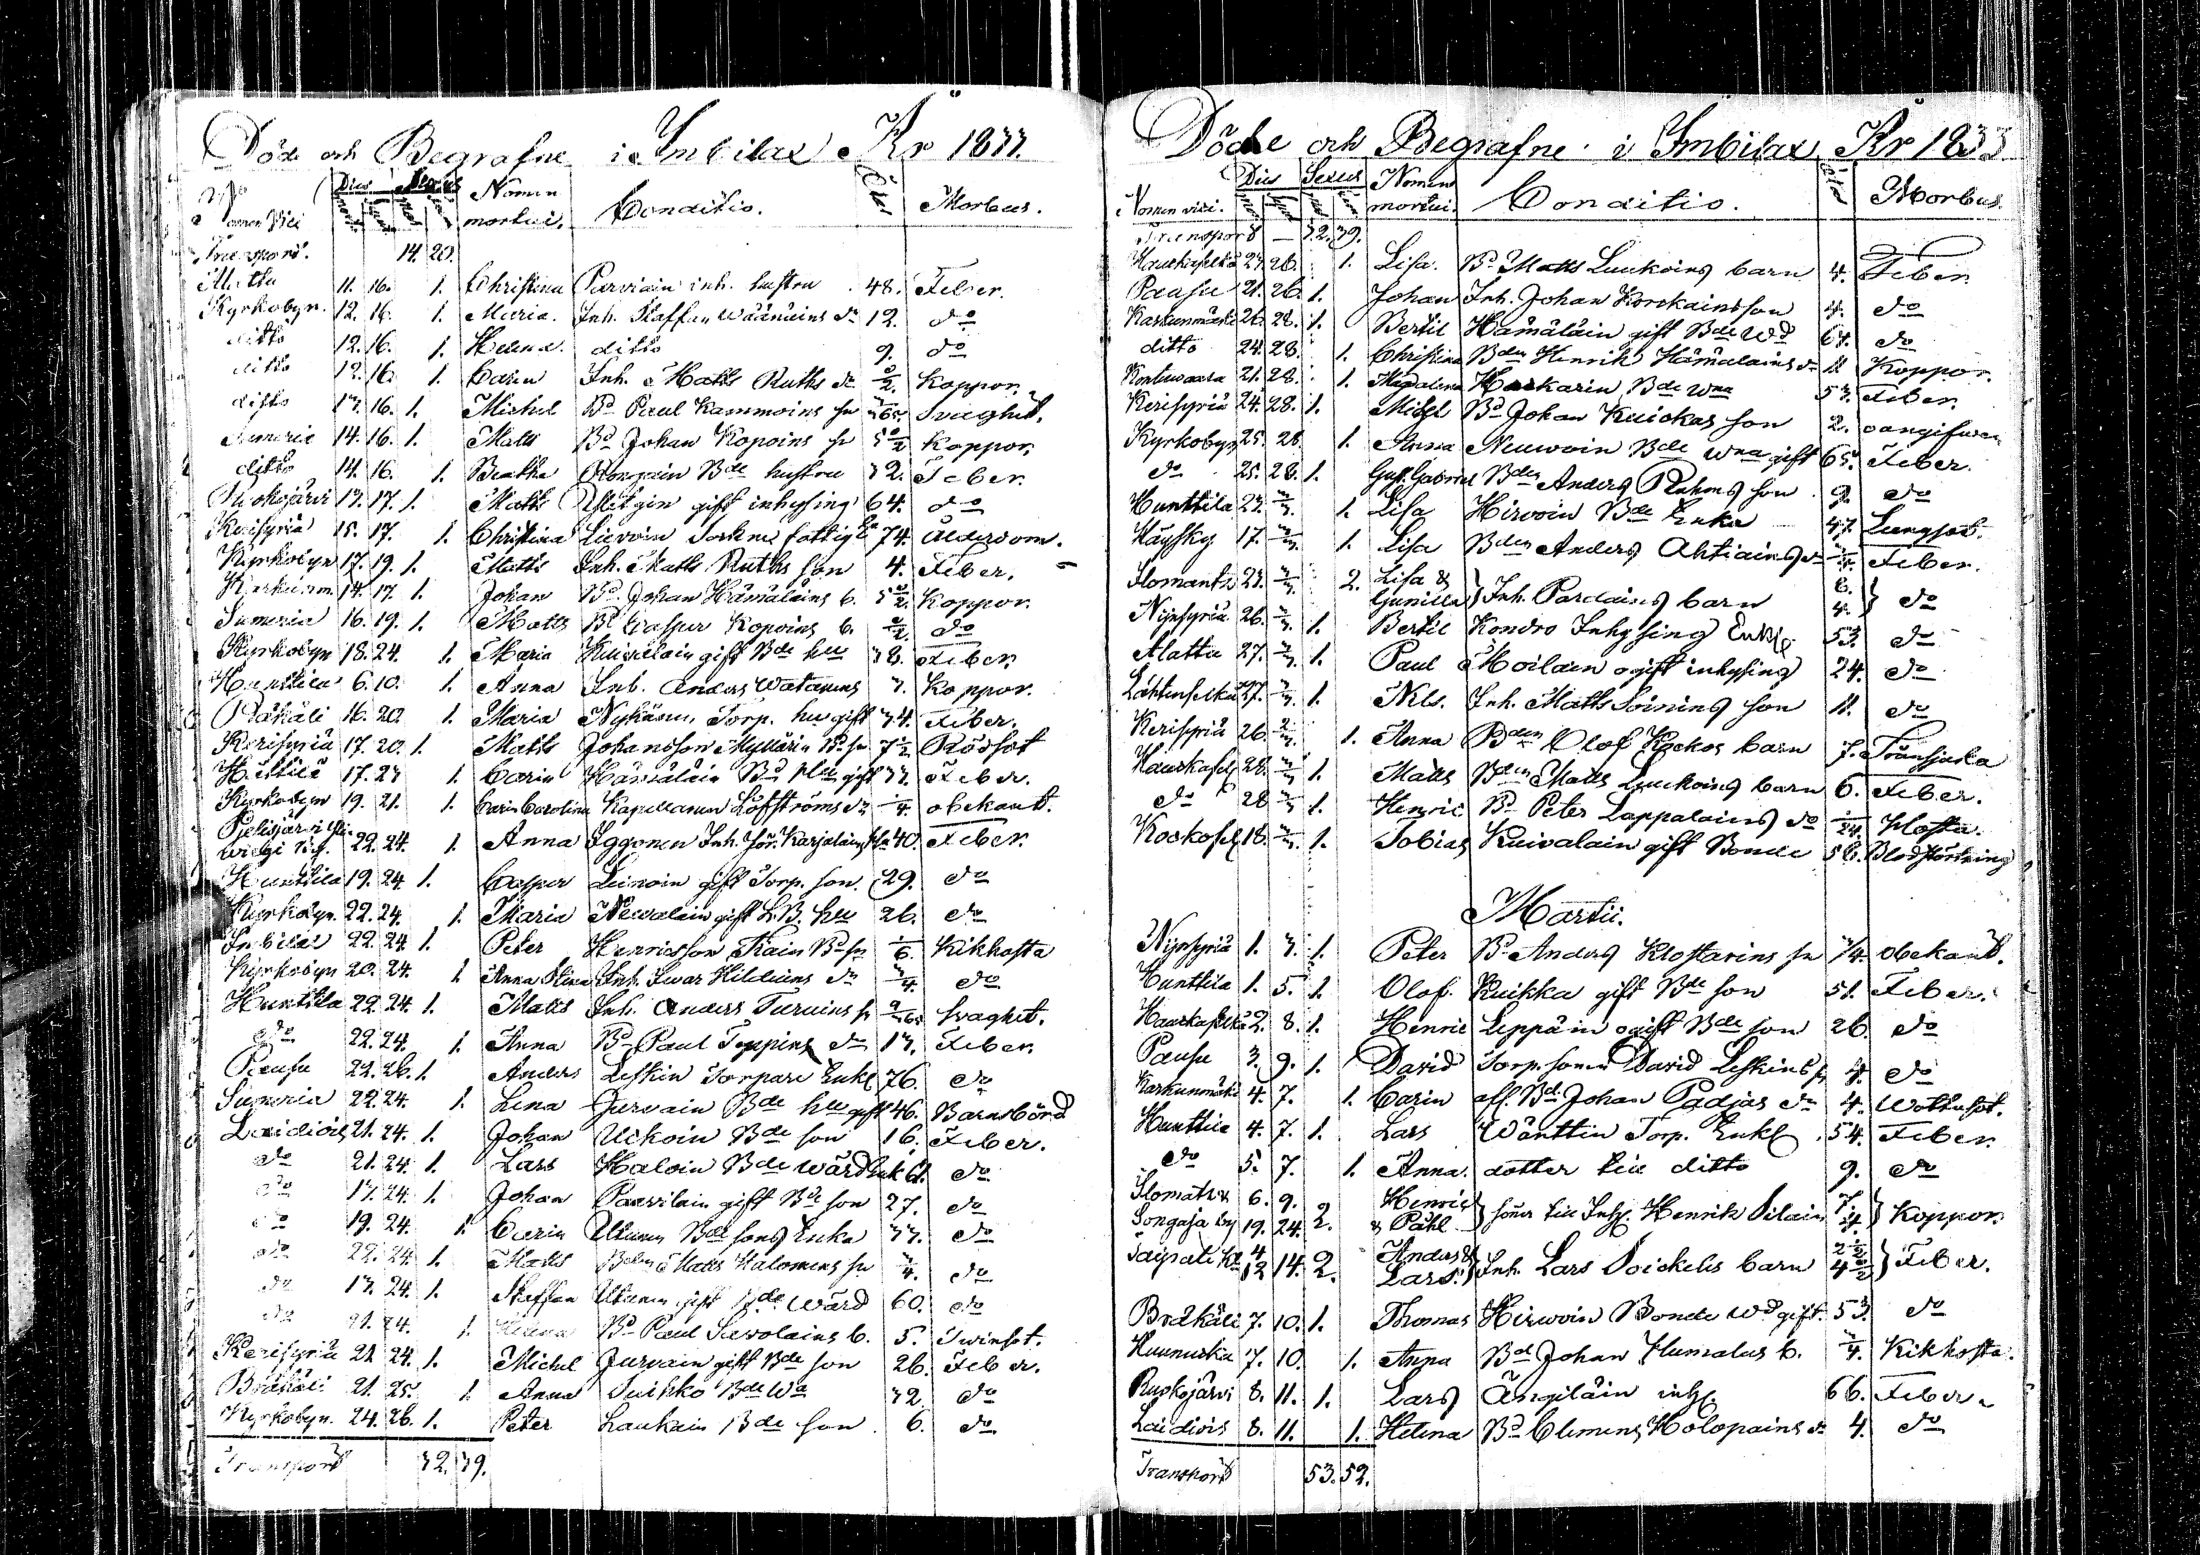 Döde och Begrafne i Imbilax År 1833.
Nomen Vici Dies Sexus Nomen mortui. Conditio. Ætas Morbus.
Transport. 14. 20.
Alattu 11. 16. 1. Christina Parviain inh. hustru 48. Feber.
Kyrkobyn. 12. 16. 1. Maria. Inh. Staffan Wäänäins dr 12. do
ditto 12. 16. 1. Helena. ditto 9. do
ditto 12. 16. 1. Carin Inh. Matts Ruths dr Koppor.
ditto 13. 16. 1. Michel Bd Paul Kammoins sn Svaghet.
Sumeria 14. 16. 1. Matts Bd Johan Kopoins sn Koppor
ditto 14. 16. 1. Beatha Bde hustru 32. Feber.
Ruokojärvi 13. 17. 1. Matts gift inhysing 64. do
Kerisyriä 15. 17. 1. Christina Sockne fattig 74. Ålderdom.
Kyrkobyn 17. 19. 1. Matts Inh. Matts Ruths son 4. Feber.
14. 17. 1. Johan Bd Johan Hämäläins b. Koppor.
Sumeria 16. 19. 1. Matts Bd Casper Kopoins b. do
Kyrkobyn 18. 24. 1. Maria gift Bde hu 38. Feber.
Hunttila 6. 10. 1. Anna Inh. Anders Watanens 3. Koppor.
16. 20. 1. Maria Nykänen Torp. hu gift 34. Feber.
Kerisyriä 17. 20. 1. Matts Johansson Myllärin Bd sn 7½ Rödsot
17. 23 1. Carin Hämäläin Bd gift 33. Feber.
Kyrkobyn 19. 21. 1. Carin Carolina Kapellanen Löfströms dr obekant.
22. 24. 1. Anna Iggonen Inh. Karjalains 40. Feber.
Hunttila 19. 24 1. Casper Leinoin gift Torp. son. 29. do
Kyrkobyn. 22. 24. 1. Maria Newalain gift hu 26. do
Imbilax 22. 24 1. Peter Henricsson Bd sn Kikhosta
Kyrkobyn 20. 24. 1. Anna Stina Inh. Iwar Hildiuns dr do
Hunttila 22. 24. 1. Matts Inh. Anders Turuins sn Svaghet.
do 22. 24. 1. Anna Bd Paul Toppins dr 13. Feber.
Pausu 22. 26. 1. Anders Leskin Torpare Enkl 76. do
Sumeria 22. 24. 1. Lena Jurvain Bde hu gift 46. Barnsbörd
Laidiois 21. 24. 1. Johan Uikoin Bde son 16. Feber.
do 21. 24. 1. Lars Haloin Bde wärd Enk 61. do
do 13. 24. 1. Johan Paavilain gift Bde son 27. do
do 19. 24. 1. Carin Utunen Bde sons Enka 33. do
do 22. 24. 1. Matts Bden Matts Halonens sn do
do 13. 24. 1. Staffan Utunen gift Bde wärd 60. do
do 21. 24. 1. Helena Bd Paul Savolains b. 5. Twinsot.
Kerisyriä 21. 24. 1. Michel Jurvain gift Bde son 26. Feber.
Bräkäli 21. 25. 1. Anna Suihko Bde Wa 32. do
Kyrkobyn. 24. 26. 1. Peter Laukain Bde son 6. do
Transport 32. 39.
Döde och Begrafne i Imbilax År 1833
Nomen vici. Dies Sexus Nomen mortui. Conditio. Morbus.
Transport — 32. 39.
Hauskaselkä 23. 26. 1. Lisa. Bd Matts Luukoins barn 4. Feber.
Pausu 21. 26. 1. Johan Inh. Johan Korckains son 4. do
Karkunmäki 26. 28. 1. Bertil Hämäläin gift Bde Wd 64. do
ditto 24. 28. 1. Christina Bden Henrik Hämäläins dr 11 Koppor.
Kontuvaara 21. 28. 1. Magdalena Bde Wna 53. Feber.
Kerisyriä 24. 28. 1. Michel Bd Johan Kuickas son 2.
Kyrkobyn 25. 28 1. Anna Neuwoin Bde Wna gift 65. Feber.
do 25. 28. 1. Gust. Gabriel Bden Anders son 9. do
Hunttila 23. 1. Lisa Hirwoin Bde Enka 47. Lungsot.
17. 1. Lisa Bden Anders Ahtiains dr Feber.
Ilomants 23. 2. Lisa & Gunilla Inh. Pardains barn 8. 4. do
Nijnsyriä 26. 1. Bertil Kondro Inhysing Enkl 53. do
Alattu 27. 1. Paul Moilain ogift inhysing 24. do
27. 1. Nils. Inh. Matts Soinins son 11. do
Kerisyriä 26. 1. Anna Bden Olof Kockos barn 7. Tränsjuka
Hauskasel 28. 1. Matts Bden Matts Luukoins barn 6. Feber.
do 28 1. Henric Bd Peter Lappalains do Hosta.
Kockosel 18. 1. Tobias Kuivalain gift Bonde 56. Blodstörtning
Martii.
Nijnsyriä 1. 3. 1. Peter Bd Anders Klostarins sn 3/4. obekant.
Hunttila 1. 5. 1. Olof. Kuikka gift Bde son 51. Feber.
Hauskaselkä 2. 8. 1. Henric Leppäin ogift Bde son 26. do
Pausu 3. 9. 1. David Torp. sonen David Leskins sn 4. do
Karkunmäki 4. 7. 1. Carin afl. Bd. Johan Padjas dr 4. Wattusot.
Hunttila 4. 7. 1. Lars Wänttin Torp. Enkl 54. Feber.
do 5. 7. 1. Anna. dotter till ditto 9. do
Ilomants 6. 9. 2 Henric
Songaja by 19. 24. 2. & Påhl söner till Inhs. Henrik Silain Koppor.
Taipali 4. 12 14. 2. Anders & Lars. Inh. Lars Soickelis barn Feber.
Bräkäli 7. 10. 1. Thomas Hirwoin Bonde Wd gift. 53. do
Huunuska 7. 10. 1. Anna Bd Johan Humalas b. 3/4. Kikhosta.
Ruokojärvi 8. 11. 1. Lars Ängiläin inhs 66. Feber.
Laidiois 8. 11. 1. Helena Bd Clemens Holopains dr 4. do
Transport 53. 52.